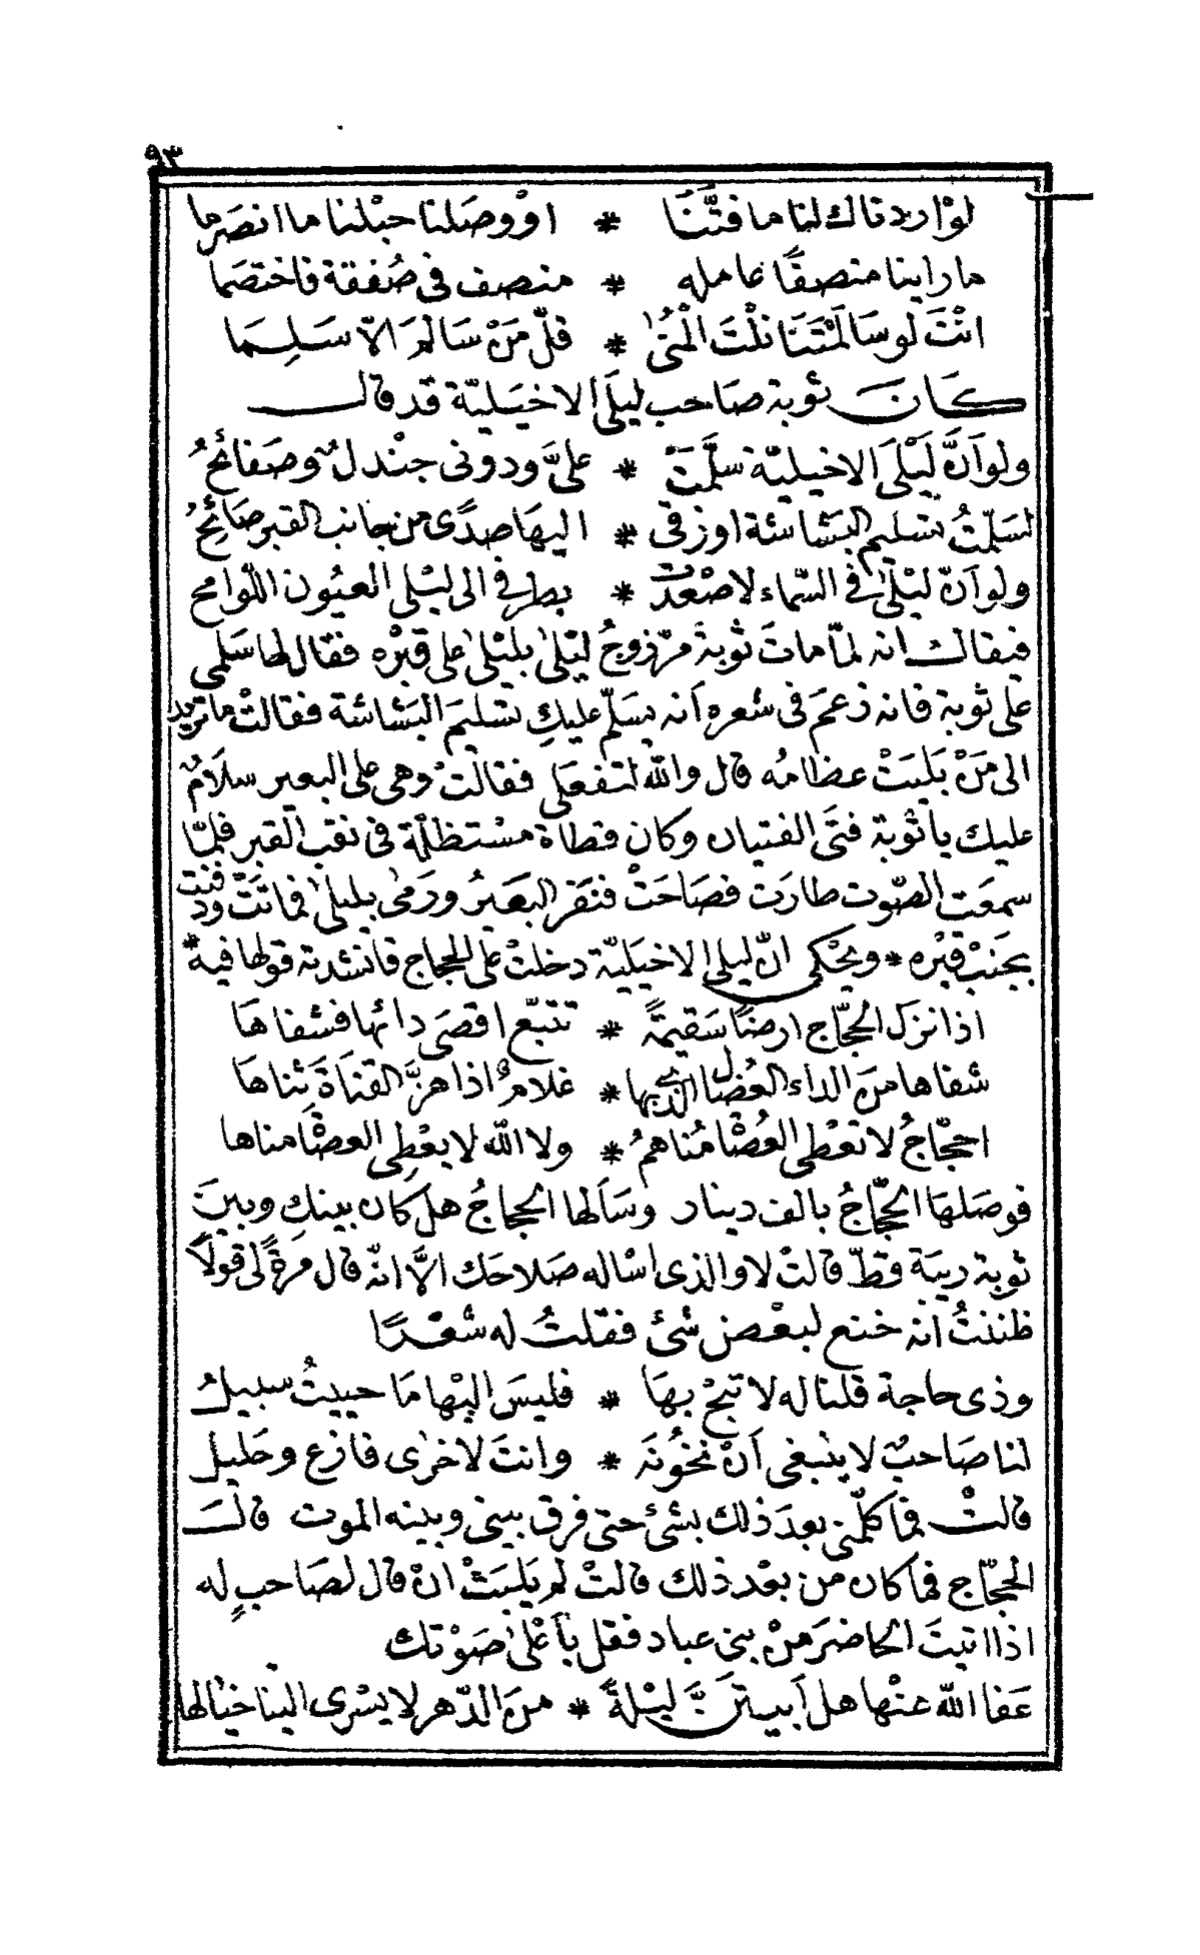 ٩٣
لوْ اردناك لنا ما فتَّنَا * اوْ وصَلنا حبْلنا ما انصَرما
ما راينا منصفًا عامله * منصف فى صُفقة فاختصَما
انْتَ لو سَالمْتَنَا نلْتَ الْمنٰى * قلّ مَنْ سَالمَ الاّ سَلِمَا
كَانَ ثوبة صَاحب ليلَى الاخيَليّة قد قال
ولو اَنَّ لَيْلَى الاخيليّة سلَّمَتْ * علىَّ ودونى جنْدلٌ وصَفائحُ
لسَلّمْتُ تسليم البَشَاشة اوزقى * اليهَا صدًى من جانب القبر صَائِحُ
ولو اَنّ ليْلىٰ فى السّماء لاصْعَدتْ * بطرفى الى ليْلى العيُون اللّوامح
فيقال انه لمّا ماتَ ثوبة مرّ زوجُ ليْلىٰ بليْلىٰ على قبْره فقال لها سَلمى
على ثوبة فانه زعمَ فى شعره اَنه يسَلّم عليكِ تسليمَ البَشاشة فقالتْ ما تريد
الى مَنْ بَليَتْ عظامُه قال والله لتفعَلى فقالتْ وهى على البعير سلاَمٌ
عليك يا ثوبة فتَى الفتيان وكان قطاة مسْتظلّة فى نقب القبر فلمّا
سمعَت الصّوت طارَت فصَاحَتْ فنفر البَعَيرُ ورَمىٰ بليلىٰ فماتتْ ودفنت
بجَنب قبْره * ويحْكى انّ ليلى الاخيَليّة دخلتْ على الحجاج فانشدته قولها فيه *
اذا نزلَ الحجّاج ارضًا سَقيمةً * تتبّع اقصَى دائها فشفاهَا
شفاها منَ الداء العُضال الذى بها * غلامٌ اذا هزّ القناةَ ثناهَا
احجّاجُ لا تعْطى العُصَاة مُناهمُ * ولا الله لا يعْطِى العصَاة مناها
فوصَلهَا الحجّاجُ بالف دينار وسَاَلها الحجاجُ هل كان بينكِ وبينَ
ثوبة ريبَة قطّ قالتْ لا والذى اسْاله صَلاحَك الاَّ انّه قال مرةً لى قولاً
ظننتُ انه خنع لبعْض شئ فقلتُ له شعْرًا
وذى حاجة قلنا له لا تبحْ بهَا * فليسَ اليْها مَا حييتُ سبيلُ
لنا صَاحبٌ لا ينبغى اَنْ نخُونَه * وانتَ لاخرٰى فازع وحَليل
قالتْ فما كلّمنى بعدَ ذلك بشئ حتى فرق بينى وبينه الموت قالَ
الحجّاج فما كان من بعْد ذلك قالتْ لم يَلبَثْ انْ قال لصَاحبٍ له
اذا اتيتَ الحاضرَ منْ بنى عباد فقل باَعْلىٰ صَوْتك
عَفا الله عنْها هل اَبيتنَّ ليْلةً * منَ الدّهر لا يسْرى الينا خيَالها